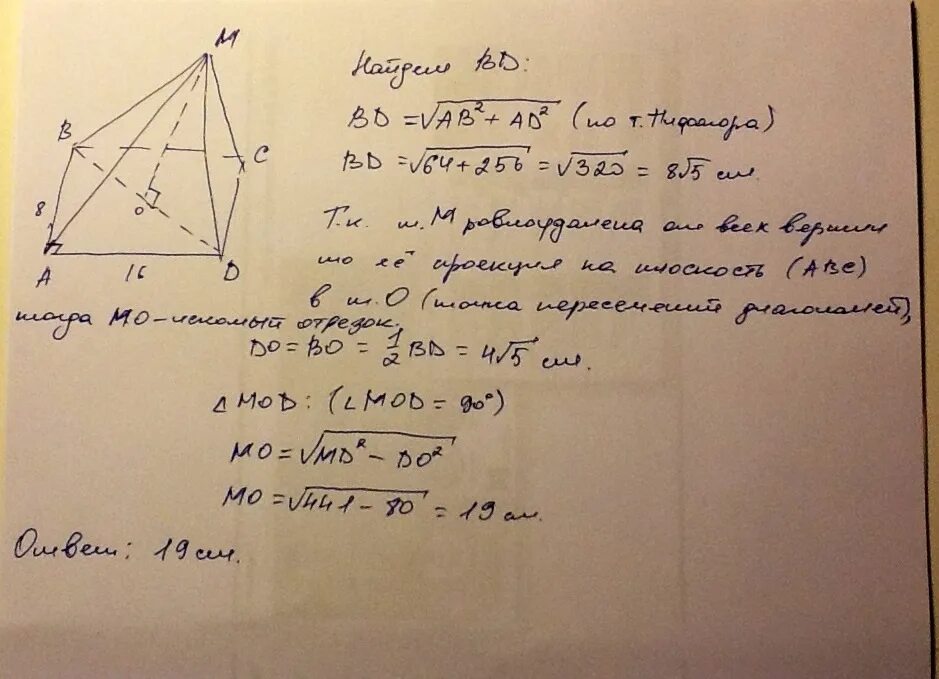 M
B
C
8
O
A
16
D
Найдем BD:
BD = √AB² + AD² (по т. Пифагора)
BD = √64 + 256 = √320 = 8√5 см.
Т.к. т. M равноудалена от всех вершин
то её проекция на плоскость (ABC)
в т. O (точка пересечений диагоналей),
тогда MO – искомый отрезок.
DO = BO = 1/2 BD = 4√5 см.
△MOD: (∠MOD = 90°)
MO = √MD² – DO²
MO = √441 – 80 = 19 см.
Ответ: 19 см.